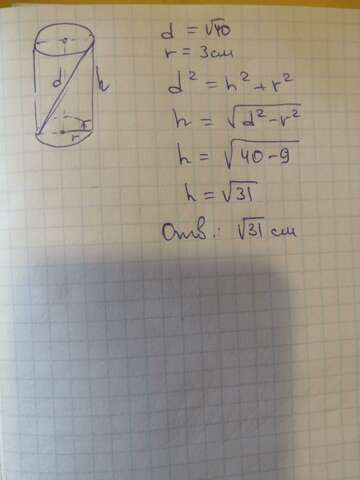 d
h
r
d = √40
r = 3 см
d² = h² + r²
h = √(d² - r²)
h = √(40 - 9)
h = √31
Отв.: √31 см